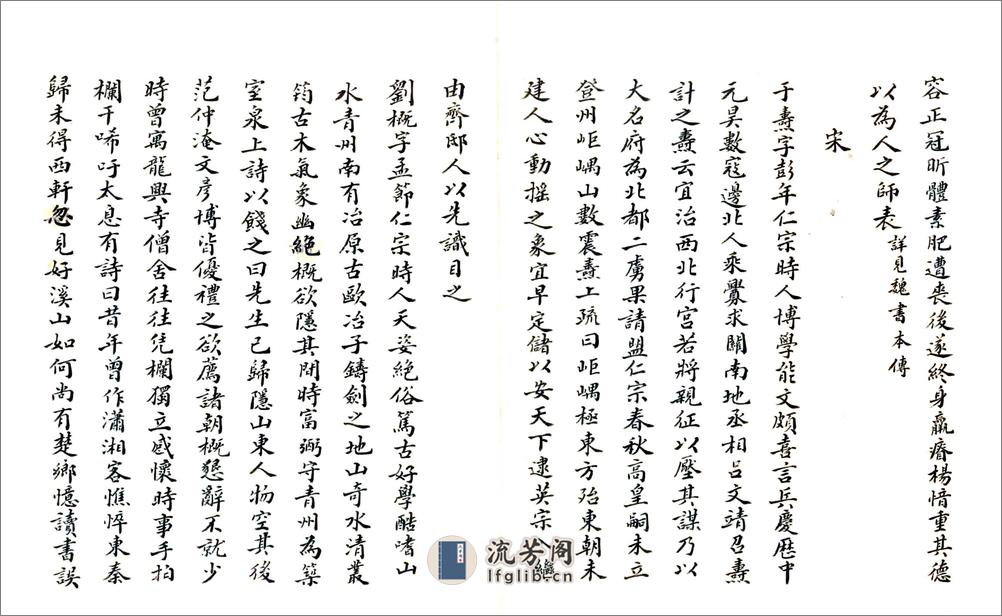 容正冠昕體素肥遭喪後遂終身羸瘠楊愔重其德
以為人之師表詳見魏書本傳
宋
于燾字彭年仁宗時人博學能文頗喜言兵慶歷中
元昊數寇邊北人乘釁求關南地丞相呂文靖召燾
計之燾云宜治西北行宮若將親征以壓其謀乃以
大名府為北都二虜果請盟仁宗春秋高皇嗣未立
登州岠嵎山數震燾上疏曰岠嵎極東方殆東朝未
建人心動搖之象宜早定儲以安天下逮英宗繼
由齊邸人以先識目之
劉概字孟節仁宗時人天姿絕俗篤古好學酷嗜山
水青州南有冶原古歐冶子鑄劍之地山奇水清叢
筠古木氣象幽絕概欲隱其間時富弼守青州為築
室泉上詩以餞之曰先生已歸隱山東人物空其後
范仲淹文彥博皆優禮之欲薦諸朝概懇辭不就少
時曾寓龍興寺僧舍往往凭欄獨立感懷時事手拍
欄干唏吁太息有詩曰昔年曾作瀟湘客憔悴東秦
歸未得西軒忽見好溪山如何尚有楚鄉憶讀書誤
流芳阁
lfglib.cn